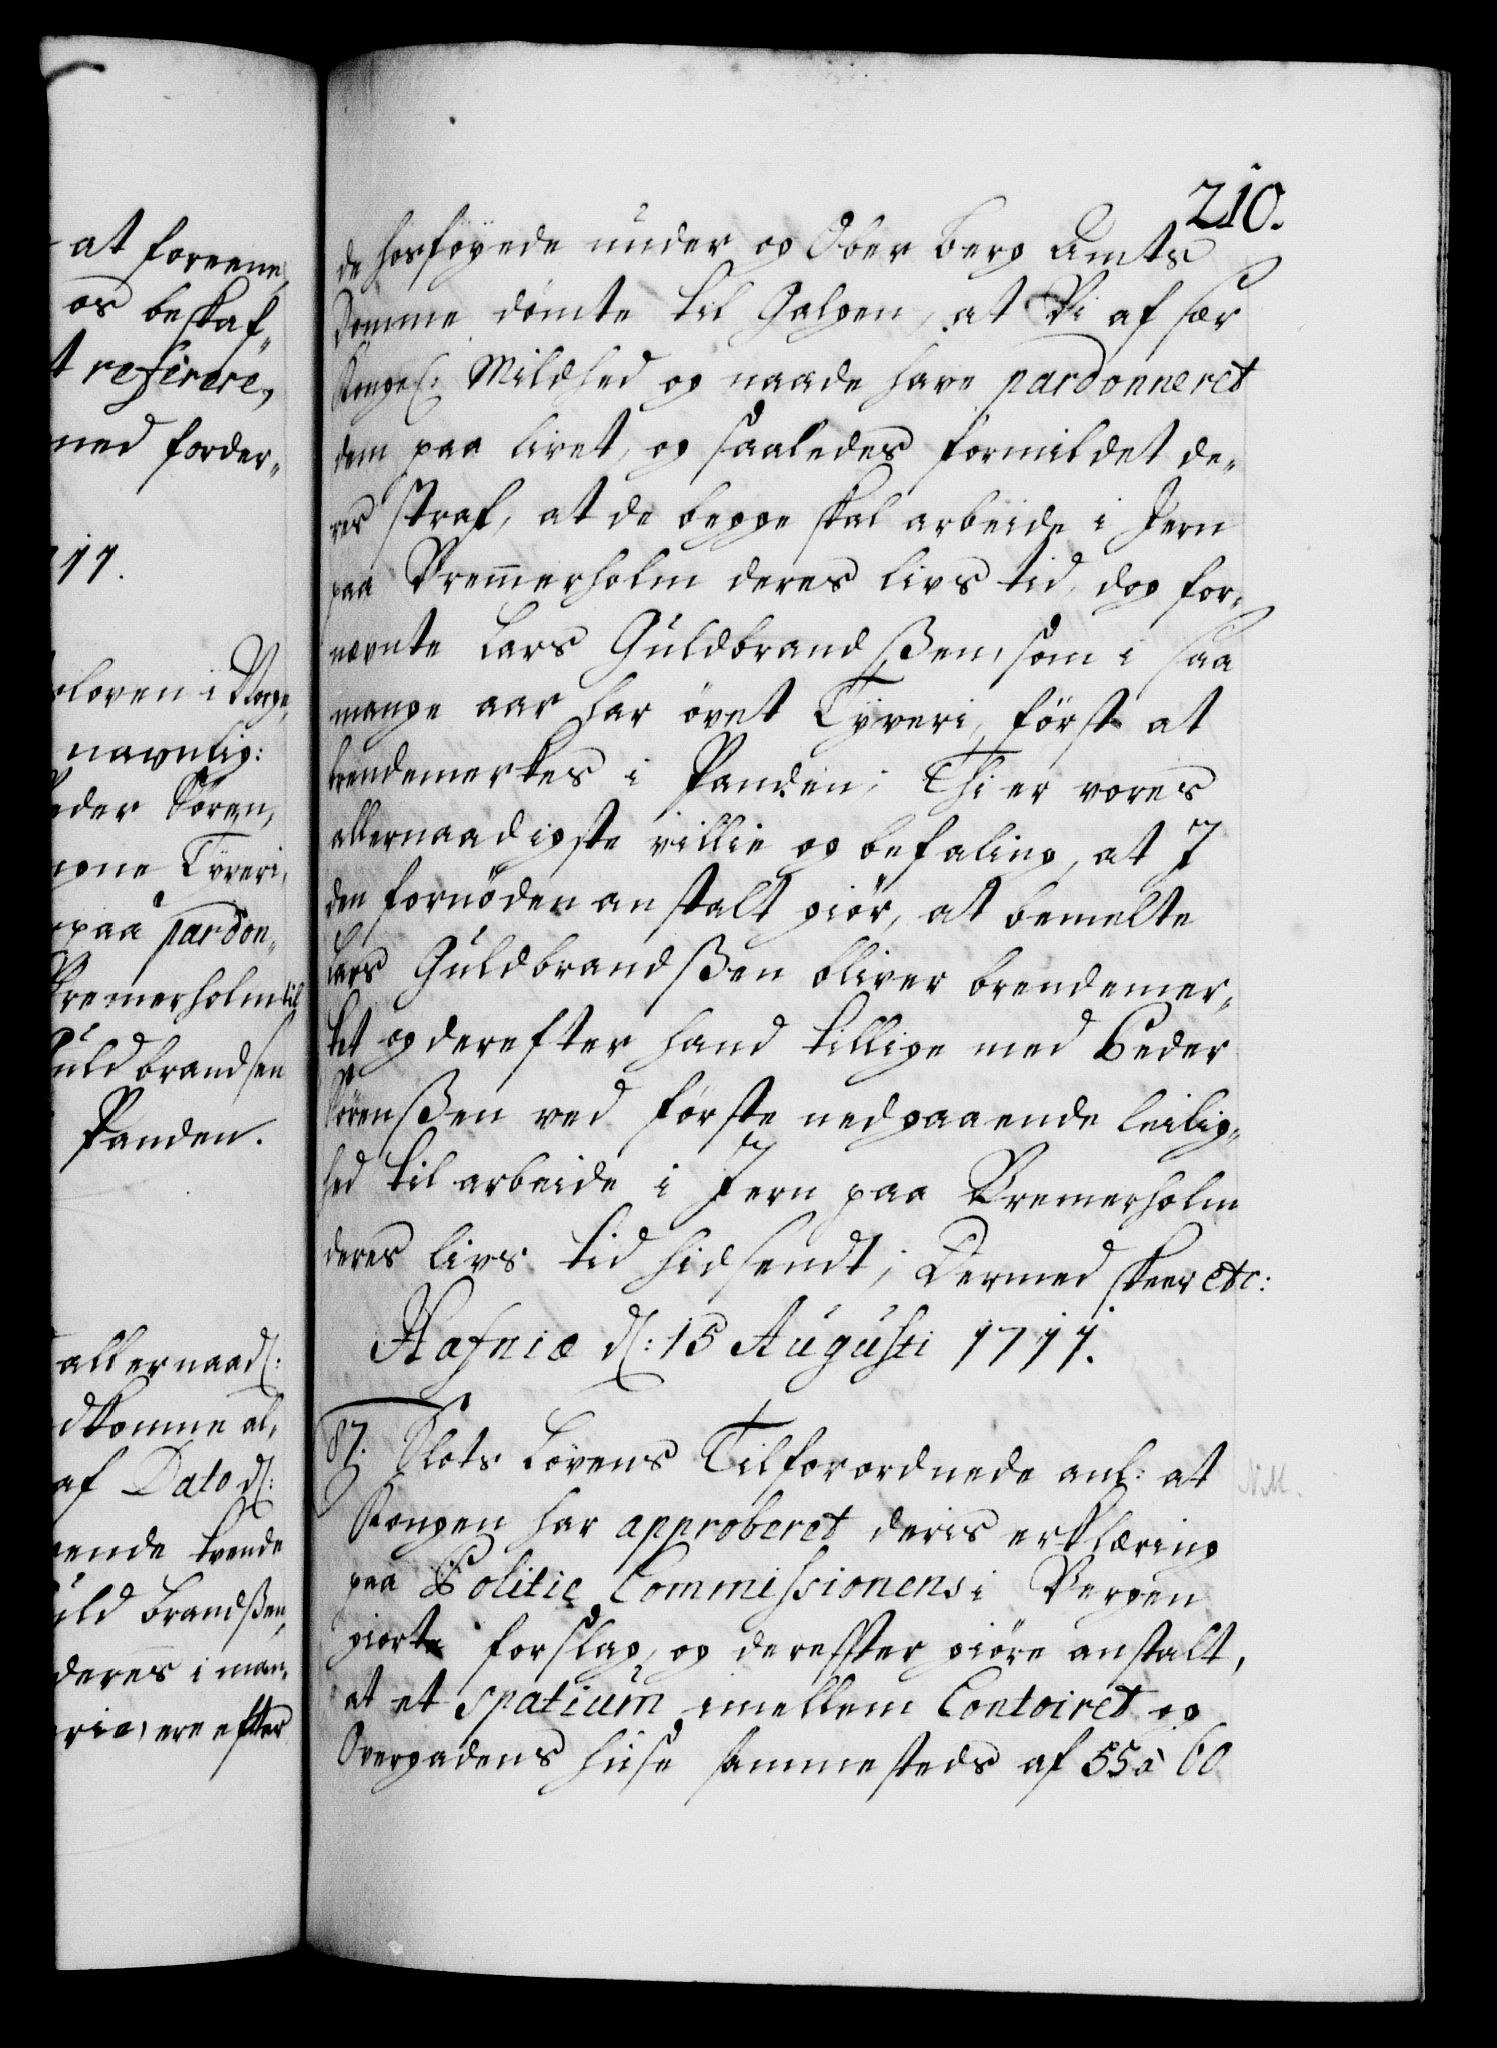 at foreene,
os beskaf„
t referere,
ned forder„
11.
sloven i Norge,
navnlig:
Peder Sören,
egne Tyveri,
paa pardon„
Bremerholm til
Guldbrandsen
Panden.
allernaad:
dkomme al„
af Dato d:
ende tvende
uld brandßen,
deres i man„
erie, ere efter
210.
de hosföyede under og Ober Berg Amts
Domme dömte til Galgen, at Vi af sær
Kongel: Mildhed og naade have pardonneret
dem paa livet, og saaledes formildet de„
res straf, at de begge skal arbeide i Jern
paa Bremerholm deres livs tid, dog for„
nevnte Lars Guldbrandßen, som i saa
mange aar har övet Tyveri, först at
brendemerkes i Panden; Thi er vores
allernaadigste villie og befaling, at I
den fornöden anstalt giör, at bemelte
Lars Guldbrandßen bliver brendemer„
ket og derefter hand tillige med Peder
Sörenßen ved förste nedgaaende leilig„
hed til arbeide i Jern paa Bremerholm
deres livs tid hidsendt; Dermed skeer etc:
Hafniæ d: 15 Augusti 1711.
87. Slots Lovens Tilforordnede anl: at
Kongen har approberet deris erklæring
paa Politie Commissionens i Bergen
giorte forslag, og derefter giöre anstalt,
at et spatium imellem Contoiret og
Overgadens huse sammesteds af 55 à 60
N.M.